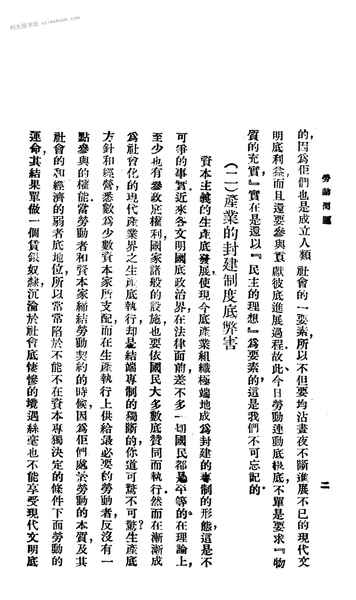 勞動問題
二
的,因爲佢們也是成立人類 社會的一要素,所以不但要均沾晝夜不斷進展不已的現代文
明底利益,而且還要參與貢獻彼底進展過程.故此、今日勞動運動底根底,不單是要求『物
質的充實,』實在是還以『民主的理想』爲要素的.這是我們不可忘記的.
(二)產業的封建制度底弊害
資本主義的生產底發展,使現今底產業組織極端地成爲封建的專制的形態,這是不
可爭的事實.近來各文明國底政治界,在法律面前,差不多一切國民都是平等的,在理論上,
至少也有參政底權利,國家諸般的設施,也要依國民大多數底贊同而執行.然而在漸漸成
爲社會化的現代產業界之生產底執行,却是結端專制的獨斷的,你道可驚不可驚?生產底
方針和經營,悉數爲少數資本家所支配,而在生產執行上供給最必要的勞動者,反沒有一
點參與的權能.當勞動者和資本家締結勞動契約的時候,因爲佢們處於勞動的本質及其
社會的和經濟的弱者底地位,所以常常陷於不能不在資本專獨決定的條件下而勞動的
運命,其結果單做一個賃銀奴隸,沉淪於社會底悽慘的境遇,絲毫也不能享受現代文明底